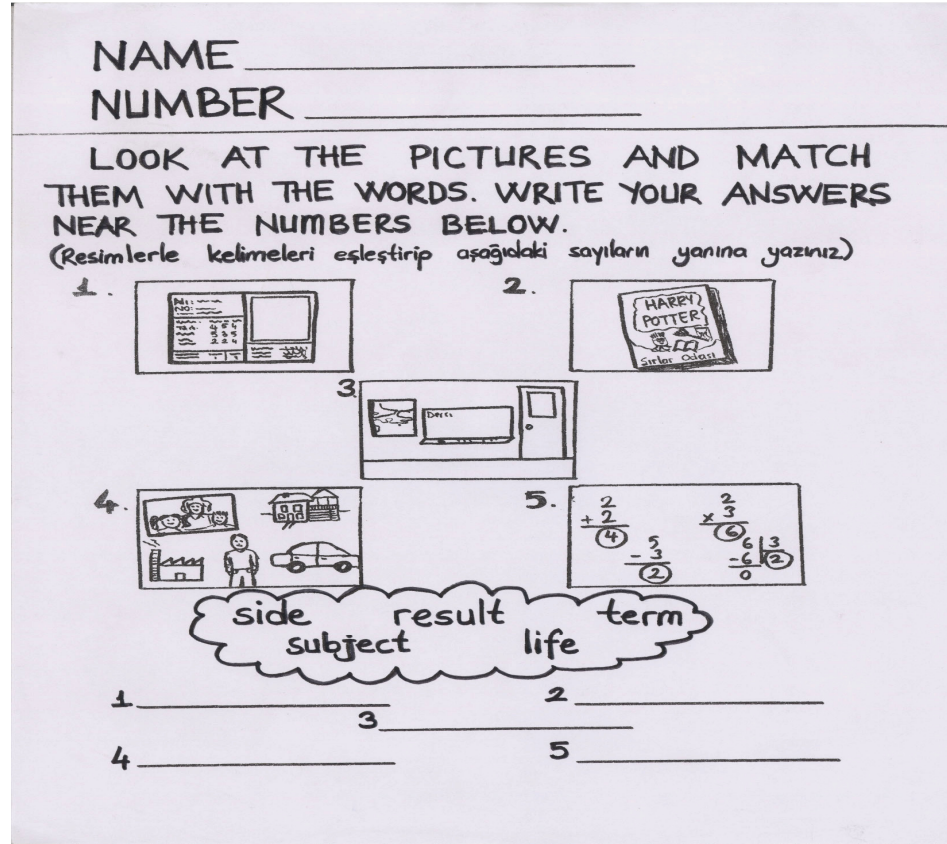 NAME
NUMBER
LOOK AT THE PICTURES AND MATCH
THEM WITH THE WORDS. WRITE YOUR ANSWERS
NEAR THE NUMBERS BELOW.
(Resimlerle kelimeleri eşleştirip aşağıdaki sayıların yanına yazınız)
1. 2.
NO:
HARRY
POTTER
Sırlar Odası
3.
Ders:
4. 5.
2 2
+ 2 x 3
4 6
5 6 3
- 3 - 6 2
2 0
side result term
subject life
1 2
3
4 5